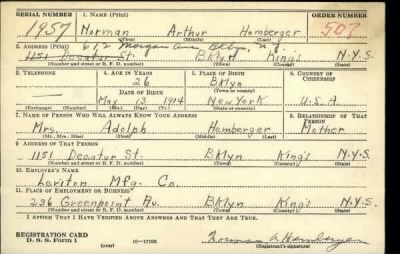 SERIAL NUMBER 1. NAME (Print) ORDER NUMBER
1957 Norman Arthur Hemberger 507
(First) (Middle) (Last)
2. ADDRESS (Print) 612 Morgan Ave Bklyn, N.Y.
1151 Decatur St. BKlyn King's N.Y.S.
(Number and street or R. F. D. number) (Town) (County) (State)
3. TELEPHONE 4. AGE IN YEARS 5. PLACE OF BIRTH 6. COUNTRY OF
26 BKlyn CITIZENSHIP
DATE OF BIRTH (Town or county)
May 13 1914 New York U.S.A
(Exchange) (Number) (Mo.) (Day) (Yr.) (State or country)
7. NAME OF PERSON WHO WILL ALWAYS KNOW YOUR ADDRESS 8. RELATIONSHIP OF THAT PERSON
Mrs. Adolph Hemberger Mother
(Mr., Mrs., Miss) (First) (Middle) (Last)
9. ADDRESS OF THAT PERSON
1151 Decatur St. BKlyn King's N.Y.S.
(Number and street or R. F. D. number) (Town) (County) (State)
10. EMPLOYER'S NAME
Leviton Mfg. Co.
11. PLACE OF EMPLOYMENT OR BUSINESS
236 Greenpoint Av. BKlyn King's N.Y.S.
(Number and street or R. F. D. number) (Town) (County) (State)
I AFFIRM THAT I HAVE VERIFIED ABOVE ANSWERS AND THAT THEY ARE TRUE.
REGISTRATION CARD
D. S. S. Form 1 (over) Norman A Hemberger
(Registrant's signature)